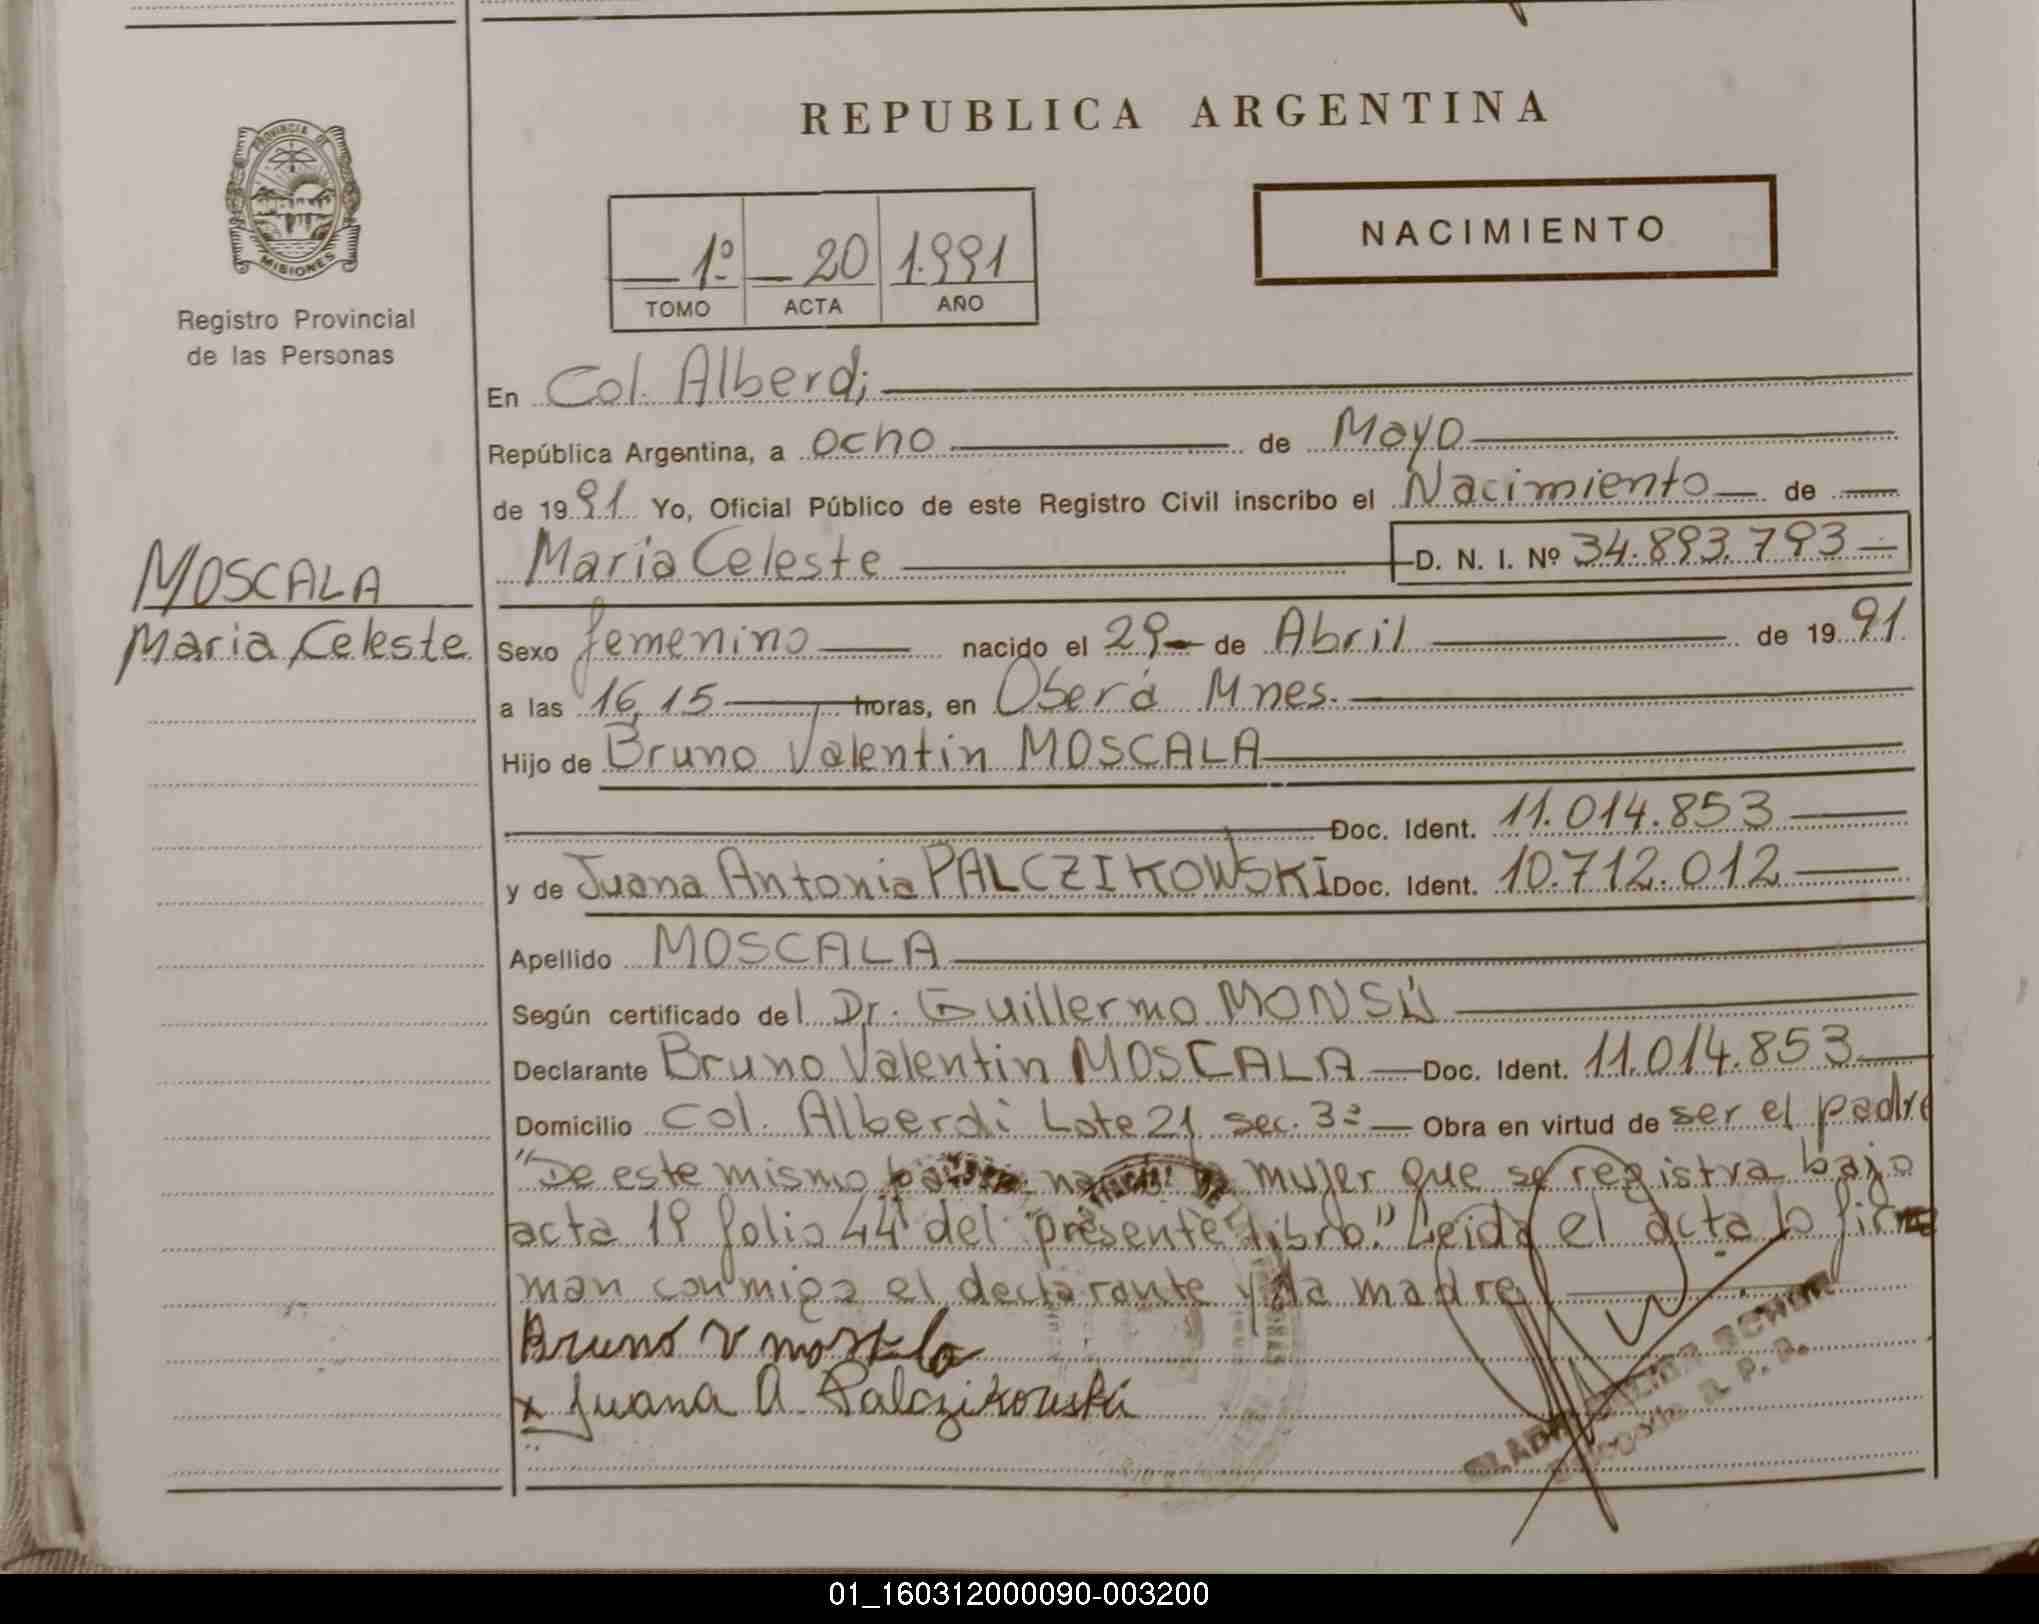 REPUBLICA ARGENTINA
PROVINCIA DE
MISIONES
Registro Provincial
de las Personas
1º 20 1.991
TOMO ACTA AÑO
NACIMIENTO
En Col. Alberdi
República Argentina, a ocho de Mayo
de 1991 Yo, Oficial Público de este Registro Civil inscribo el Nacimiento de
MOSCALA
Maria Celeste
Maria Celeste D. N. I. Nº 34.893.793
Sexo femenino nacido el 29 de Abril de 1991
a las 16,15 horas, en Oberá Mnes.
Hijo de Bruno Valentin MOSCALA
Doc. Ident. 11.014.853
y de Juana Antonia PALCZIKOWSKI Doc. Ident. 10.712.012
Apellido MOSCALA
Según certificado del Dr. Guillermo MONSÚ
Declarante Bruno Valentin MOSCALA Doc. Ident. 11.014.853
Domicilio Col. Alberdi Lote 21 sec. 3ª Obra en virtud de ser el padre
"De este mismo mujer que se registra bajo
acta 19 folio 44 del presente libro." Leida el acta lo fir
man conmigo el declarante y la madre
Bruno V moscala
x Juana A. Palczikowski
01_160312000090-003200